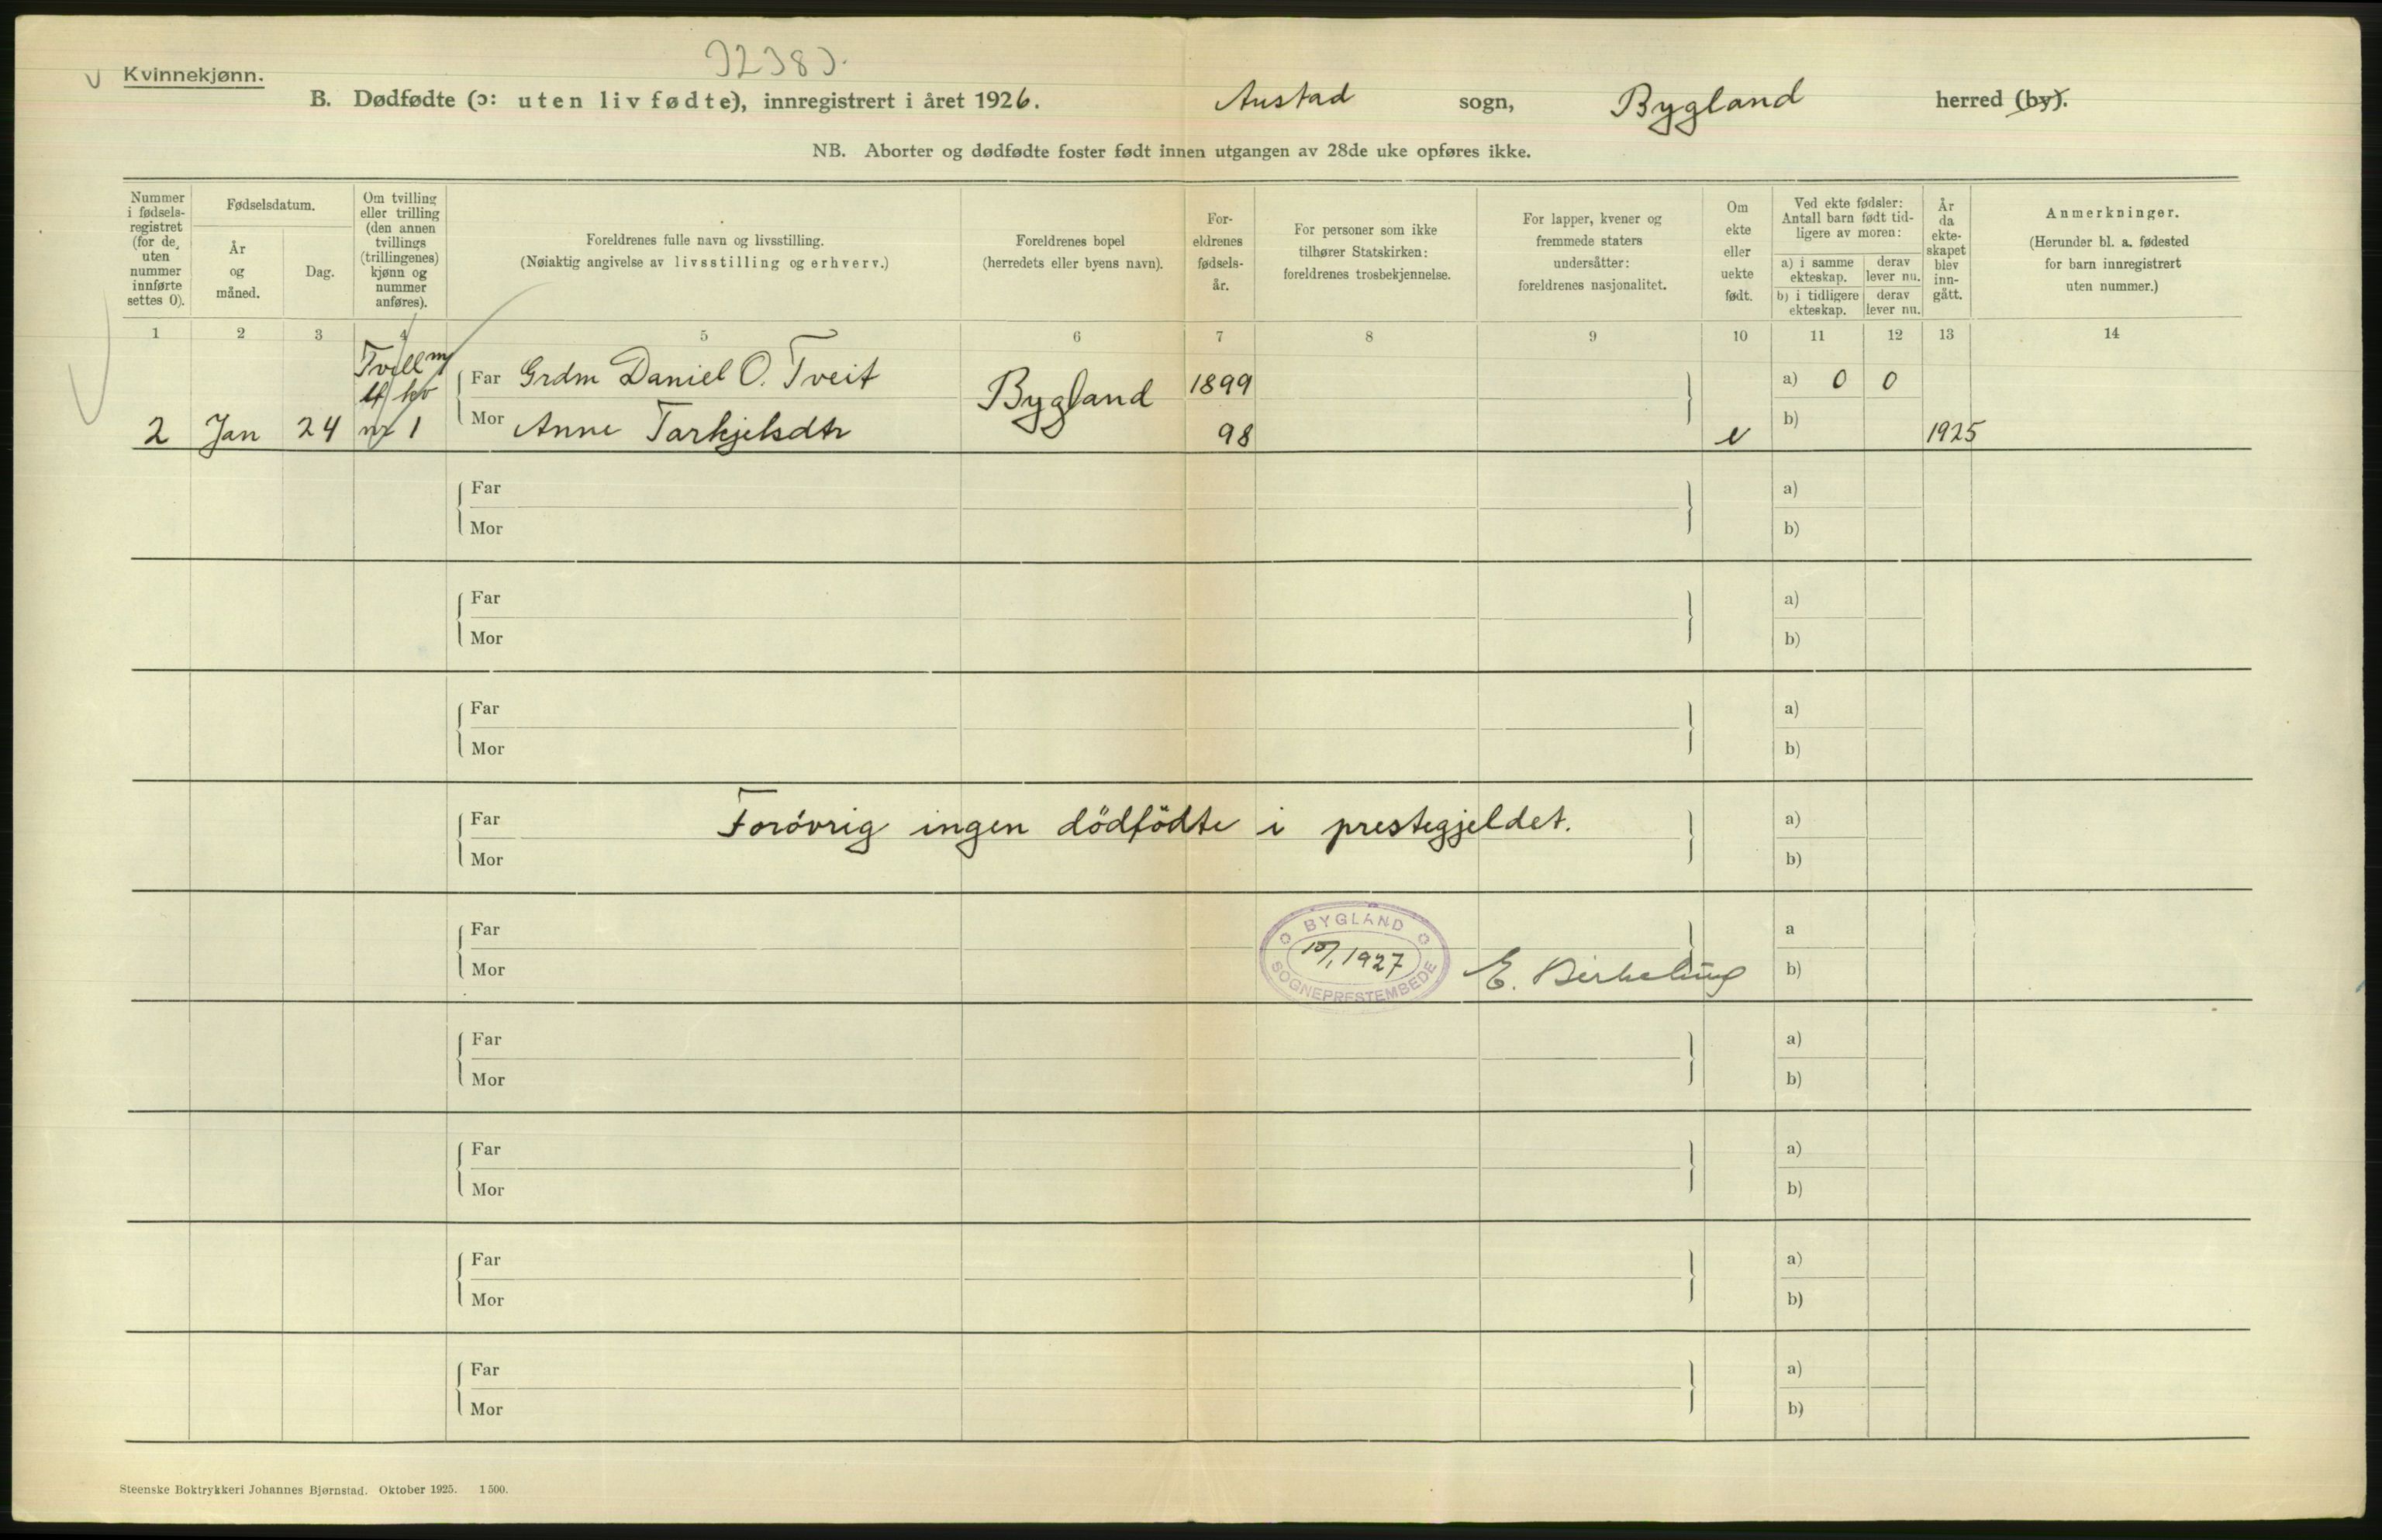 Kvinnekjønn.
B. Dødfødte (ɔ: uten liv fødte), innregistrert i året 1926. Austad sogn, Bygland herred (by).
NB. Aborter og dødfødte foster født innen utgangen av 28de uke opføres ikke.
Nummer i fødsels-registret (for de uten nummer innførte settes 0).
Fødselsdatum.
År og måned.
Dag.
Om tvilling eller trilling (den annen tvillings (trillingenes) kjønn og nummer anføres).
Foreldrenes fulle navn og livsstilling.
(Nøiaktig angivelse av livsstilling og erhverv.)
Foreldrenes bopel
(herredets eller byens navn).
For-eldrenes fødsels-år.
For personer som ikke tilhører Statskirken: foreldrenes trosbekjennelse.
For lapper, kvener og fremmede staters undersåtter: foreldrenes nasjonalitet.
Om ekte eller uekte født.
Ved ekte fødsler: Antall barn født tid-ligere av moren:
a) i samme ekteskap.
derav lever nu.
b) i tidligere ekteskap.
derav lever nu.
År da ekte-skapet blev inn-gått.
Anmerkninger.
(Herunder bl. a. fødested for barn innregistrert uten nummer.)
1 2 3 4 5 6 7 8 9 10 11 12 13 14
Tvill m
Far Grdm Daniel O. Tveit Bygland 1899 a) 0 0
2 Jan 24 nr 1 Mor Anne Tarkjelsdtr 98 e b) 1925
Far a)
Mor b)
Far a)
Mor b)
Far a)
Mor b)
Far Forøvrig ingen dödfödte i prestegjeldet. a)
Mor b)
Far BYGLAND a
Mor 1927 E. Birkeland b)
SOGNEPRESTEMBEDE
Far a)
Mor b)
Far a)
Mor b)
Far a)
Mor b)
Far a)
Mor b)
Steenske Boktrykkeri Johannes Bjørnstad. Oktober 1925. 1500.